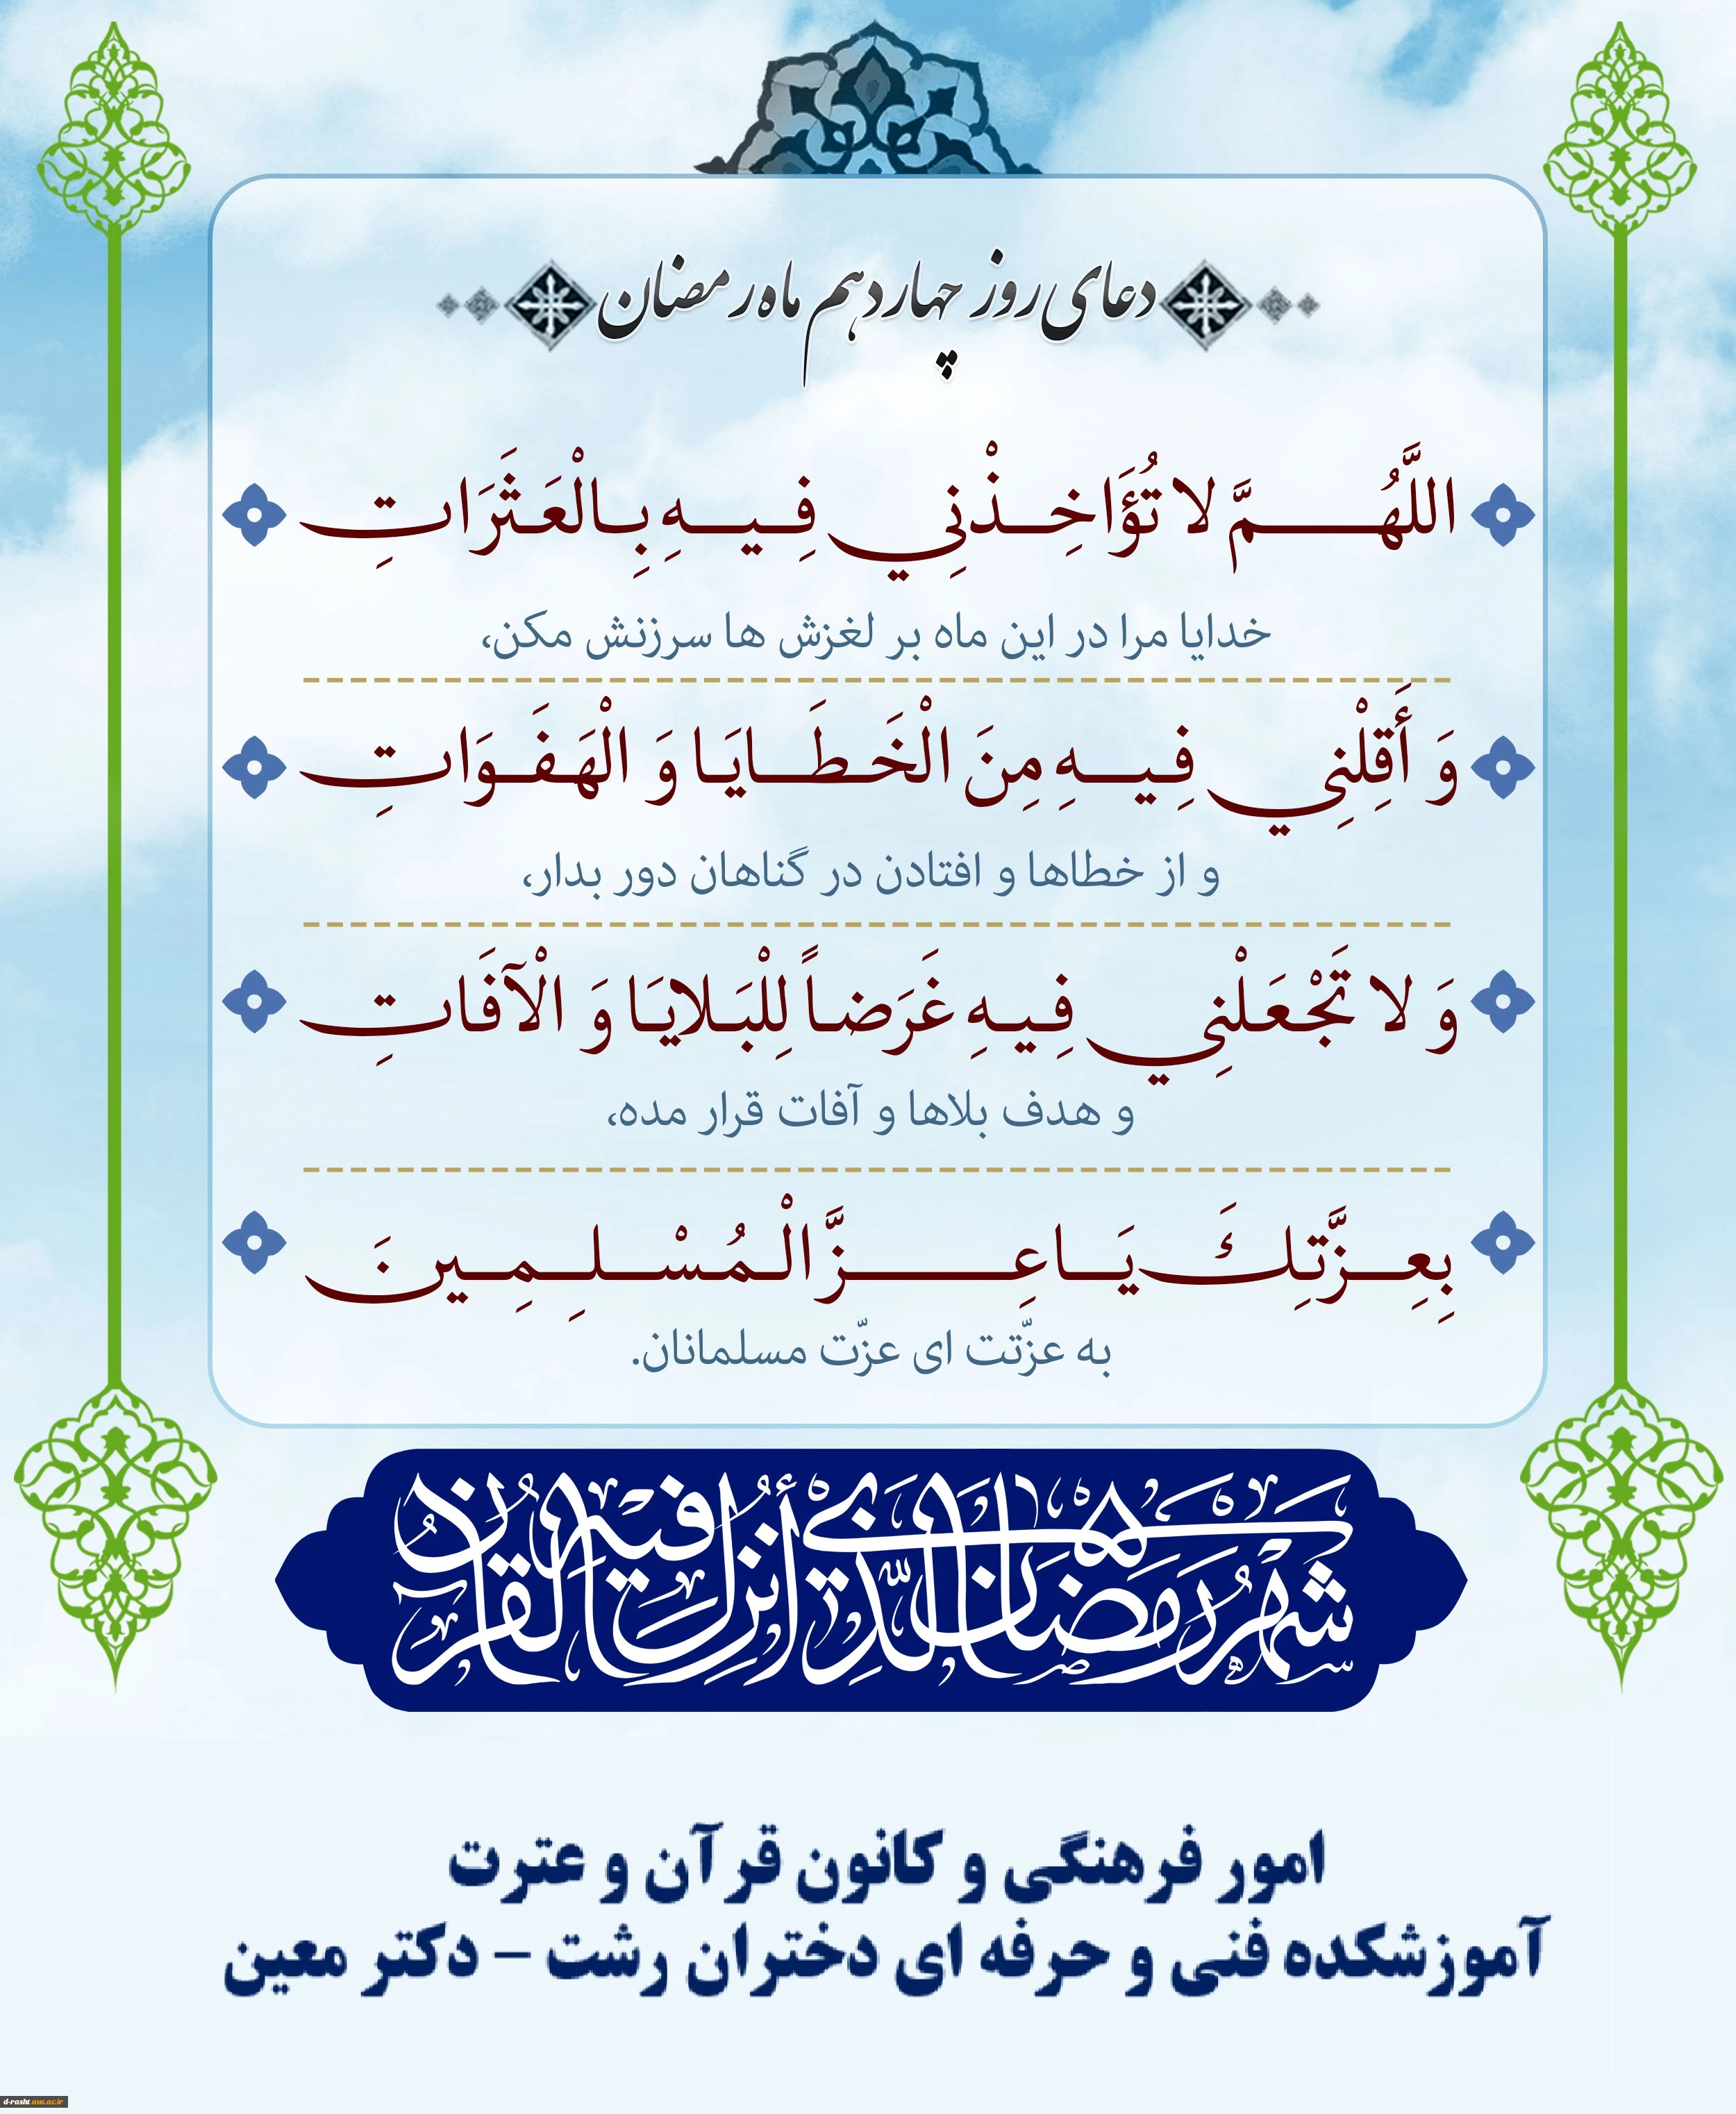 دعای روز چهاردهم ماه رمضان
اللَّهُمَّ لا تُؤَاخِذْنِي فِيهِ بِالْعَثَرَاتِ
خدایا مرا در این ماه بر لغزش ها سرزنش مکن،
وَ أَقِلْنِي فِيهِ مِنَ الْخَطَايَا وَ الْهَفَوَاتِ
و از خطاها و افتادن در گناهان دور بدار،
وَ لا تَجْعَلْنِي فِيهِ غَرَضاً لِلْبَلايَا وَ الْآفَاتِ
و هدف بلاها و آفات قرار مده،
بِعِزَّتِكَ يَا عِزَّ الْمُسْلِمِينَ
به عزّتت ای عزّت مسلمانان.
شهر رمضان الذي أنزل فيه القرآن
امور فرهنگی و کانون قرآن و عترت
آموزشکده فنی و حرفه ای دختران رشت – دکتر معین
d-rasht.nus.ac.ir